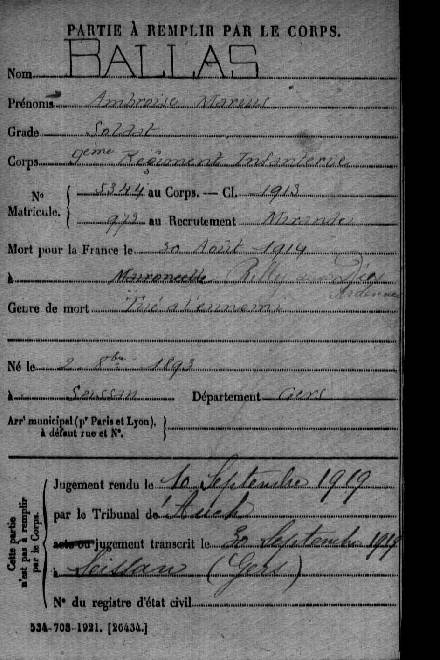 PARTIE À REMPLIR PAR LE CORPS.
Nom BALLAS
Prénoms Ambroise Marius
Grade Soldat
Corps 9eme Régiment Infanterie
N° Matricule. { 5344 au Corps. — Cl. 1913
973 au Recrutement Mirande
Mort pour la France le 30 Août 1914
à Maroncelle Rilly Ardennes
Genre de mort Tué à l'ennemi
Né le 2 8bre 1893
à Seissan Département Gers
Arrt municipal (pr Paris et Lyon), à défaut rue et N°.
Cette partie n'est pas à remplir par le Corps.
Jugement rendu le 10 Septembre 1919
par le Tribunal de Auch
acte ou jugement transcrit le 30 Septembre 1919
à Seissan (Gers)
N° du registre d'état civil
534-708-1921. [26434.]